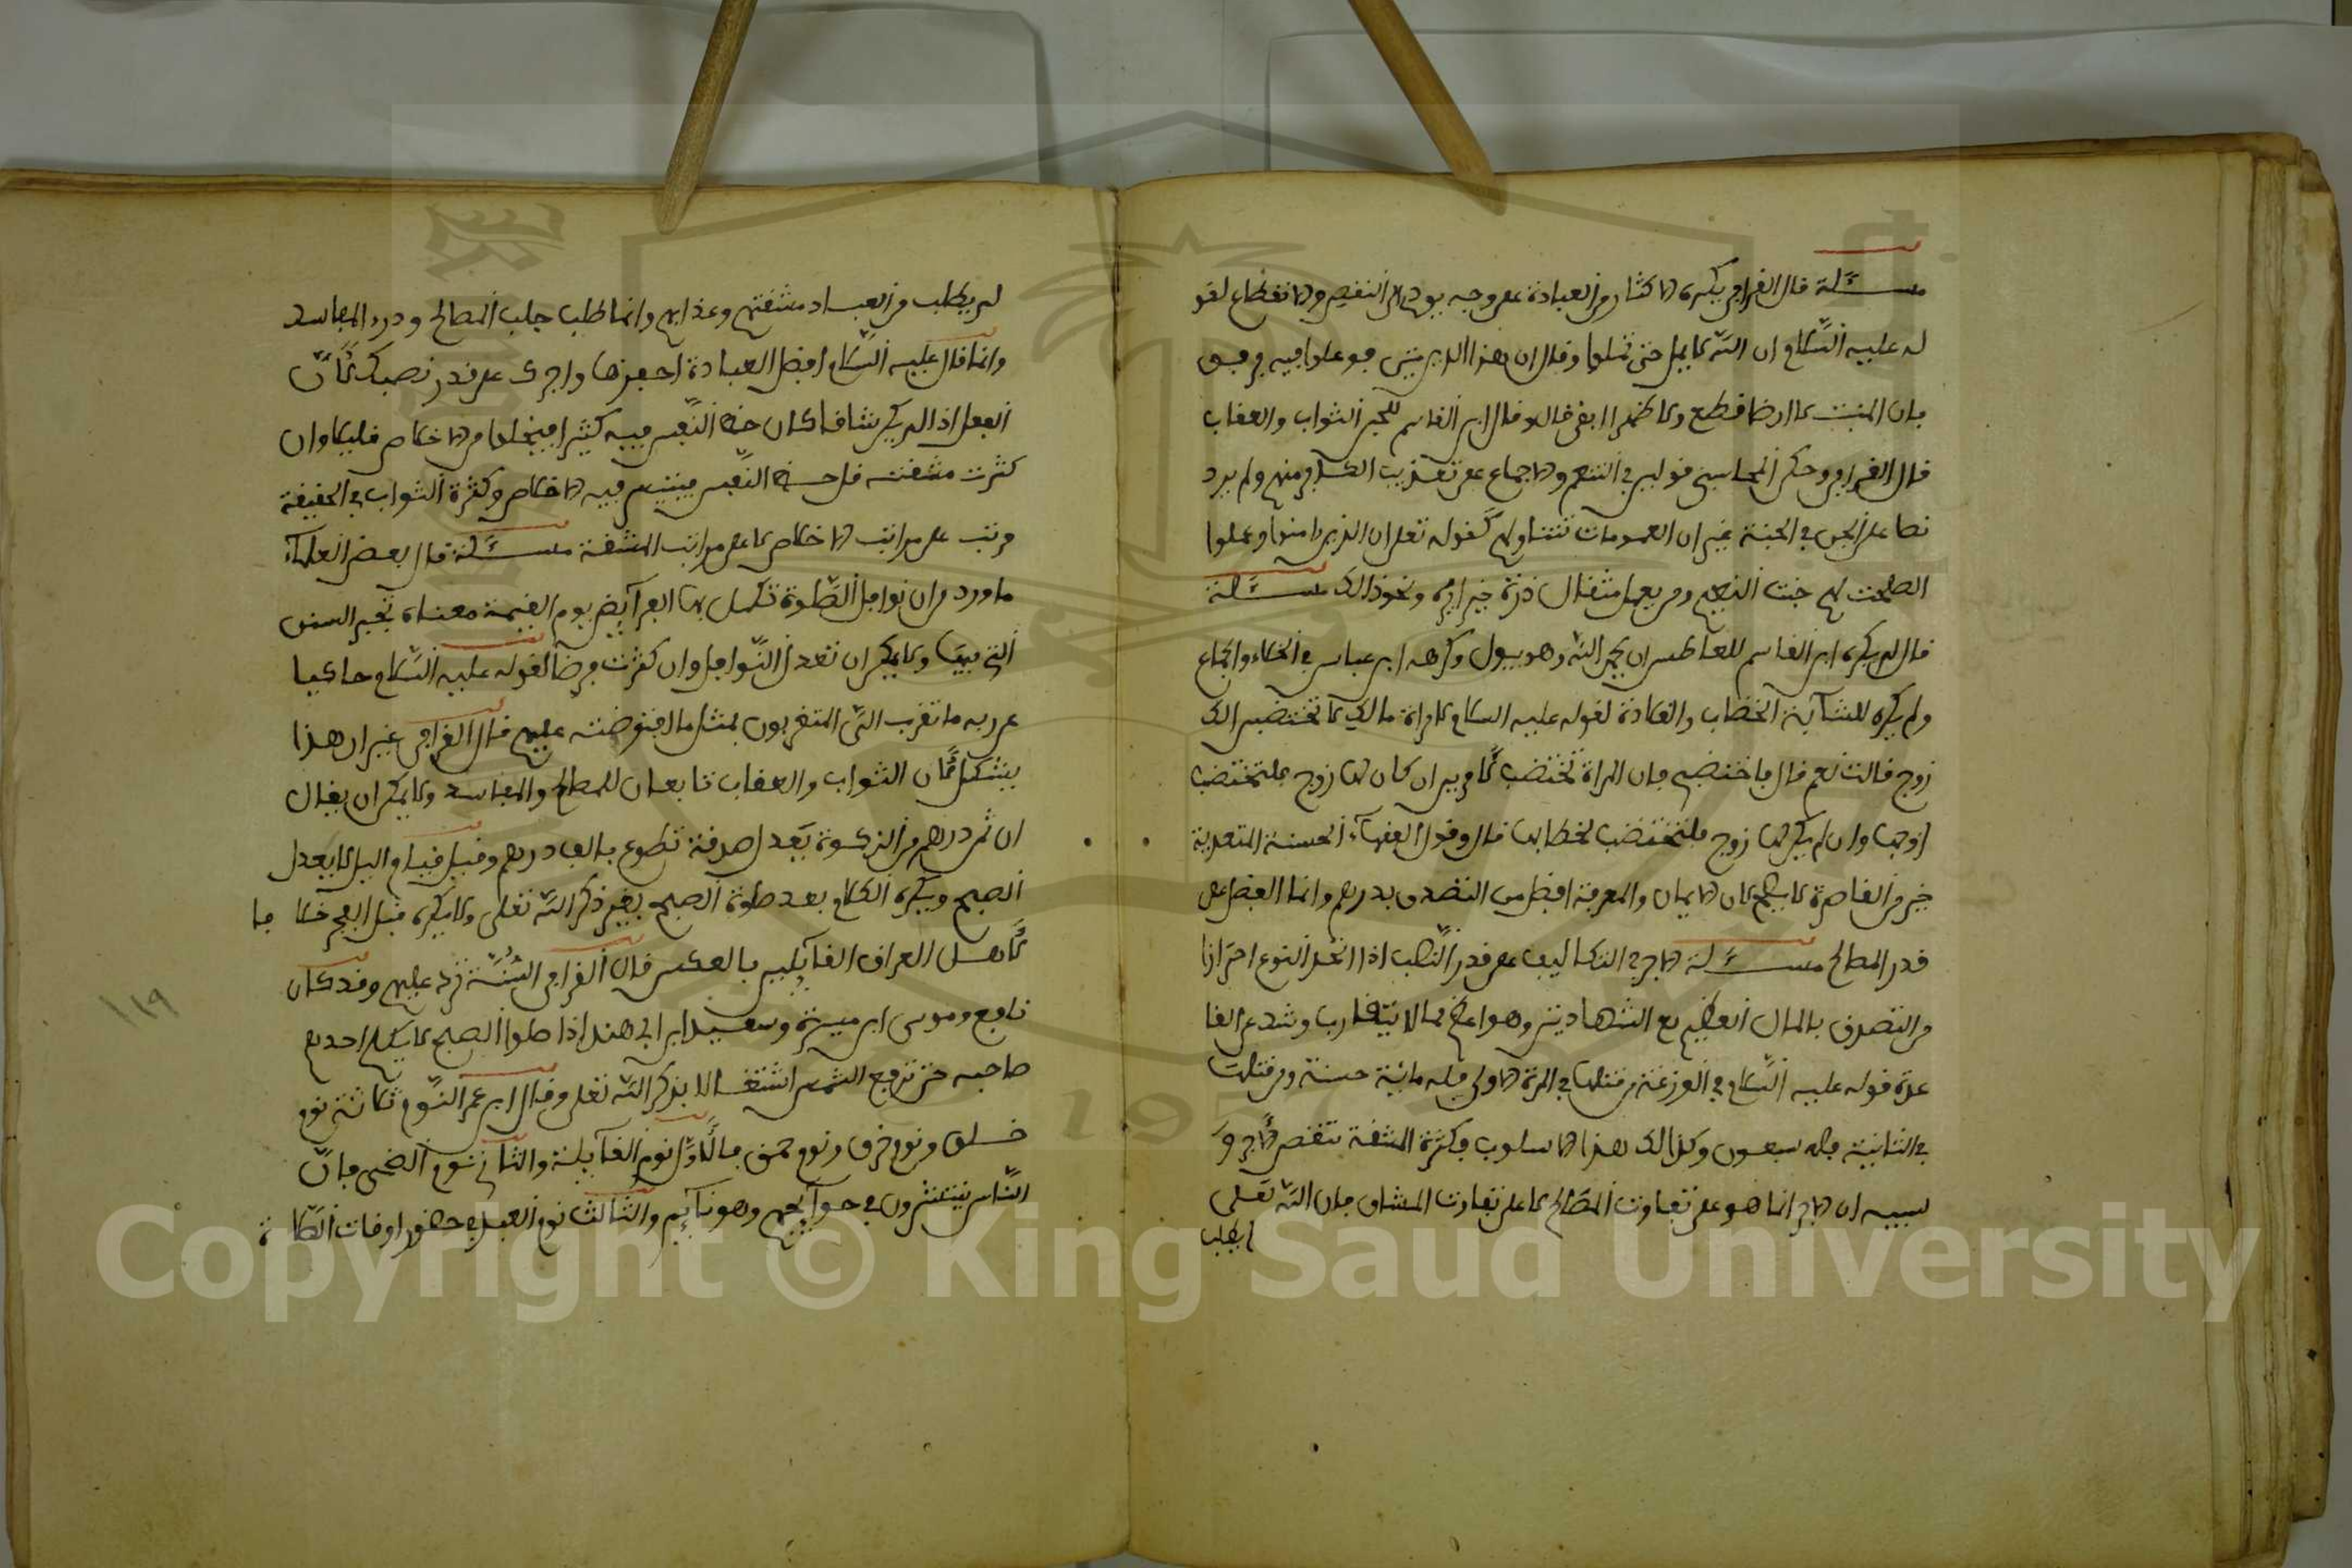 مسئلة قال القرافي يكره الاكثار من العبادة على وجه يودي الى التنغيص والانقطاع لقو
له عليه السلام ان الله لا يمل حتى تملوا وقال ان هذا الدين متين فوغلوا فيه برفق
فان المنبت لا ارضا قطع ولا ظهرا ابقى قالو قال ابن القاسم للجن الثواب والعقاب
قال القرافي وحكى المحاسبي قولين في التنعم والاجماع على تعذيب الكافر منهم ولم يرد
نصا على الجن في الجنة غير ان العمومات تتناولهم كقوله تعلى ان الذين ءامنوا وعملوا
الصلحت لهم جنت النعيم ومن يعمل مثقال ذرة خيرا يره ونحو ذالك مسئلة
قال لم يكره ابن القاسم للعاطس ان يحمد الله وهو يبول وكرهه ابن عباس في الخلاء والجماع
ولم يكره للشآبة الخضاب والقلادة لقوله عليه السلام لامراة مالك لا تختضبي الك
زوج قالت نعم قال فاختضبي فان المراة تختضب لامرين ان كان لها زوج فلتختضب
لزوجها وان لم يكن لها زوج فلتختضب لخطابها قال وقول الفقهآء الحسنة المتعدية
خير من القاصرة لا يصح لان الايمان والمعرفة افضل من التصدق بدرهم وانما الفضل على
قدر المصالح مسئلة الاجر في التكاليف على قدر النصب اذا اتحد النوع احترازا
من التصدق بالمال العظيم مع الشهادتين وهو اعظم مما لا يتقارب وشذ عن القا
عدة قوله عليه السلام في الوزغة من قتلها في المرة الاولى فله مائية حسنة ومن قتلها
في الثانية فله سبعون وكذالك هذا الاسلوب فكثرة المشقة تنقص الاجر و
سببه ان الاجر انما هو على تفاوت المصالح لا على تفاوت المشاق فان الله تعلى
لم يطلب
لم يطلب من العباد مشقتهم وعذابهم وانما طلب جلب المصالح ودرء المفاسد
وانما قال عليه السلام افضل العبادة احمزها واجرك على قدر نصبك لأن
الفعل اذا لم يكن شاقا كان حظ النفس فيه كثيرا فيخلوا من الاخلاص قليلا وان
كثرت مشقته قل حظ النفس فيتيسر فيه الاخلاص وكثرة الثواب في الحقيقة
مرتب على مراتب الاخلاص لا على مراتب المشقة مسئلة قال بعض العلمآء
ما ورد من ان نوافل الصلوة تكمل بها الفرآيض يوم القيمة معناه تجبر السنن
التي فيها ولا يمكن ان تعدل النوافل وان كثرت فرضا لقوله عليه السلام حاكيا
عن ربه ما تقرب الى المتقربون بمثل ما افترضت عليهم قال القرافي غير ان هذا
يشكل لأن الثواب والعقاب تابعان للمصالح والمفاسد ولا يمكن ان يقال
ان ثمن درهم من الزكوة يعدل صدقة تطوع بالف درهم وقيل قيام اليل لا يعدل
الصبح ويكره الكلام بعد صلوة الصبح بغير ذكر الله تعلى ولا يكره قبل الفجر خلا فا
لأهل العراق القآيلين بالعكس قال القرافي السُّنَّة ترد عليهم وقد كان
نافع وموسى ابن ميسرة وسعيد ابن ابي هند اذا صلوا الصبح لا يكلم احدهم
صاحبه حتى ترتفع الشمس اشتغالا بذكر الله تعلى وقال ابن عمر النوم ثلاثة نوم
خلق ونوم خرق ونوم حمق فالأول نوم القآيلة والثاني نوم الضحى فان
الناس ينتشرون في حوآيجهم وهو نآيم والثالث نوم العبد في حضور اوقات الصلا ة
١١٩
Copyright © King Saud University
1957